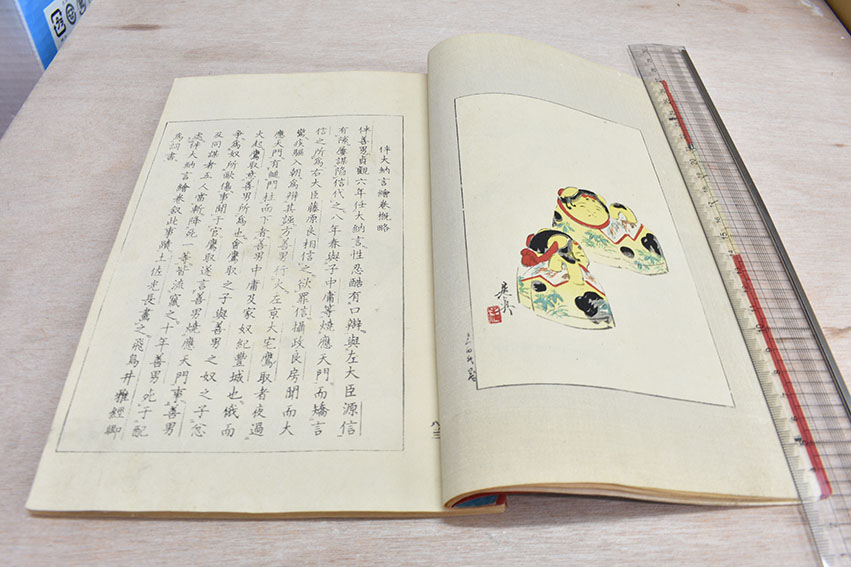 伴大納言繪卷概略
伴善男貞觀六年任大納言性忍酷有口辯與左大臣源信
有隙廉謀陷信代之八年春與子中庸等燒應天門而矯言
信之所爲右大臣藤原良相信之欲罪信攝政良房聞而大
驚疾驅入朝爲辨其誣方善男行火左京大宅鷹取者夜過
應天門有縋門柱而下者善男中庸及家奴紀豐城也俄而
火起鷹取知善男所爲也會鷹取之子與善男之奴之子忿
爭爲奴所敺傷事聞于官鷹取遂言善男燒應天門事善男
及同謀者五人當斬降死一等皆流竄之十年善男死于配
處伴大納言繪卷叙此事蹟土佐光長畫之飛鳥井雅經卿
爲詞書